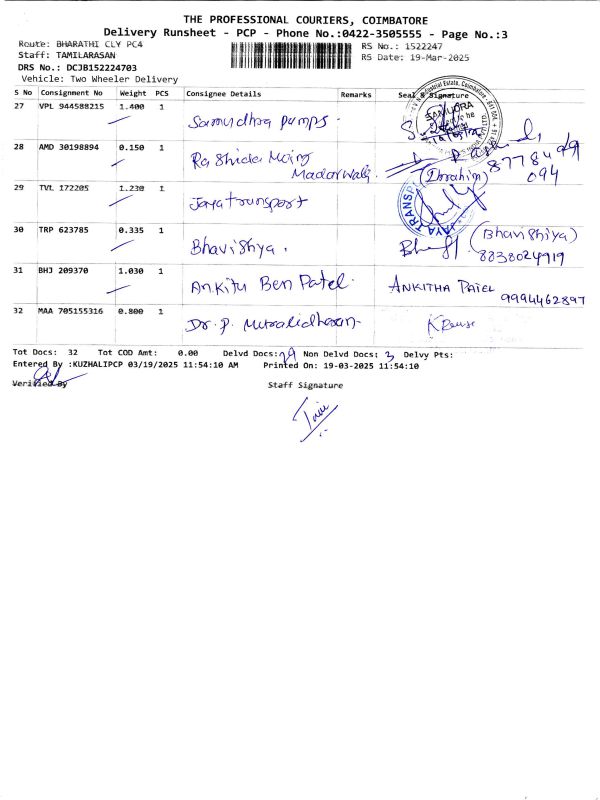 THE PROFESSIONAL COURIERS, COIMBATORE
Delivery Runsheet - PCP - Phone No.:0422-3505555 - Page No.:3
Route: BHARATHI CLY PC4
RS No.: 1522247
Staff: TAMILARASAN
RS Date: 19-Mar-2025
DRS No.: DCJB152224703
Vehicle: Two Wheeler Delivery
S No Consignment No Weight PCS Consignee Details Remarks Seal & Signature
27 VPL 944588215 1.400 1 Samudhra pumps.
28 AMD 30198894 0.150 1 Rashida
(Ibrahim)
094
29 TVL 172205 1.230 1 Jayatransport
JAYA TRANSP
30 TRP 623785 0.335 1 Bhavishya. (Bhavishiya)
8838024919
31 BHJ 209370 1.030 1 Ankitu Ben Patel. ANKITHA PATEL
9994462897
32 MAA 705155316 0.800 1 Dr. P. Muralidharan
Tot Docs: 32 Tot COD Amt: 0.00 Delvd Docs: 29 Non Delvd Docs: 3 Delvy Pts:
Entered By :KUZHALIPCP 03/19/2025 11:54:10 AM Printed On: 19-03-2025 11:54:10
Verified By Staff Signature